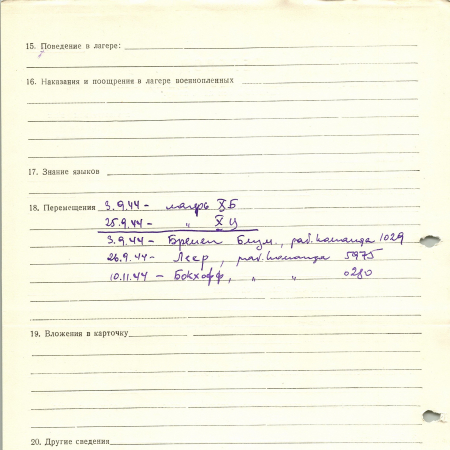 15. Поведение в лагере:
16. Наказания и поощрения в лагере военнопленных
17. Знание языков
18. Перемещения 3.9.44 – лагерь XБ
25.9.44 – " X Ц
3.9.44 – Бремен Блум., раб. команда 1029
26.9.44 – Леер, раб. команда 5975
10.11.44 – Бокхофф, " " 0280
19. Вложения в карточку
20. Другие сведения